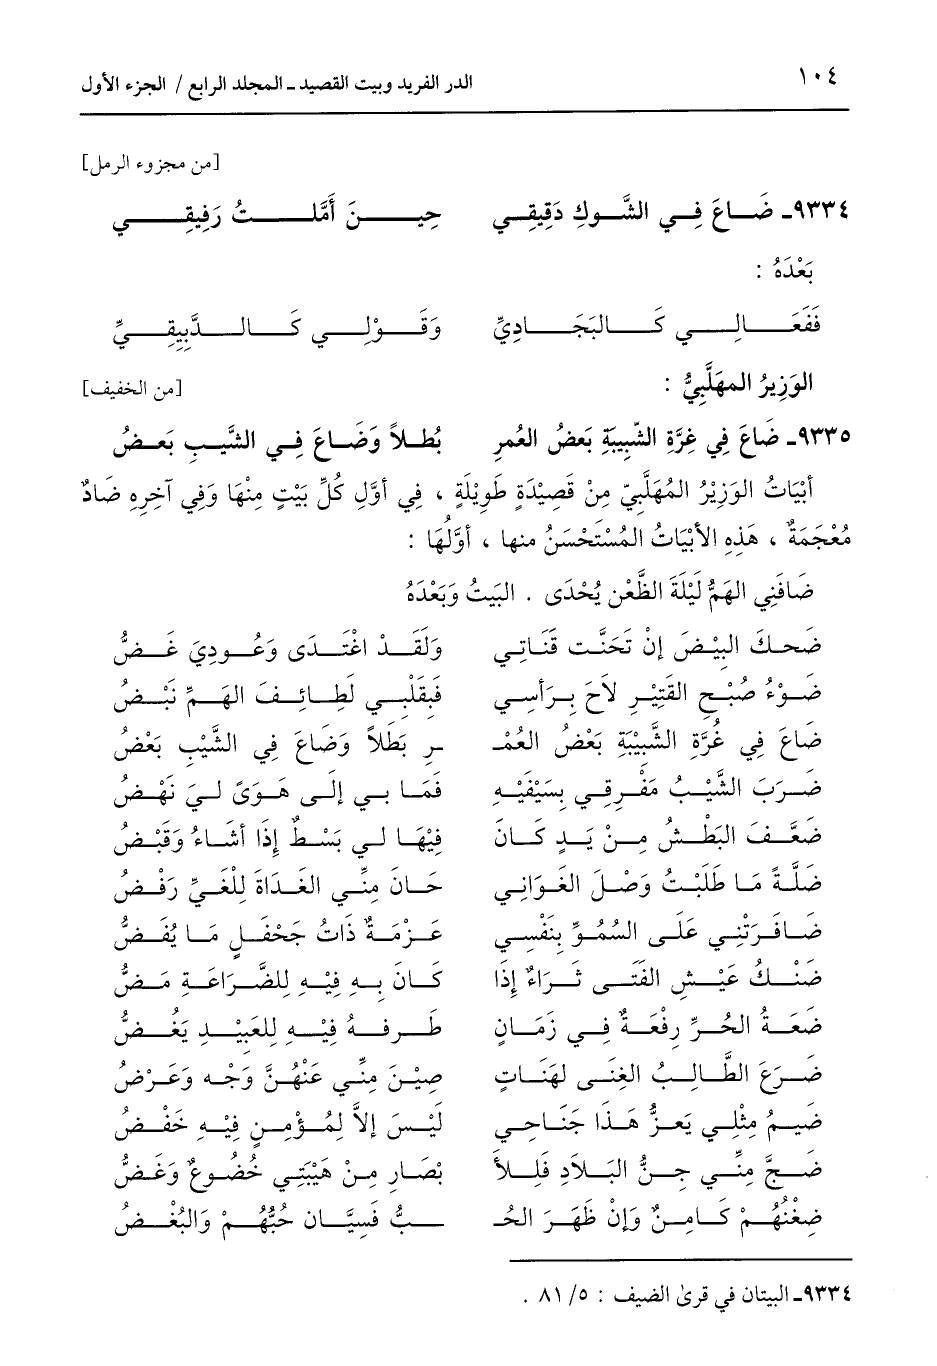 ١٠٤ الدر الفريد وبيت القصيد ـ المجلد الرابع / الجزء الأول
[من مجزوء الرمل]
٩٣٣٤ـ ضَاعَ فِي الشَّوكِ دَقِيقِي حِينَ أَمَّلتُ رَفِيقِي
بَعْدَهُ :
فَفَعَالِي كَالبَجَادِيِّ وَقَوْلِي كَالدَّبِيقِيِّ
الوَزِيرُ المهَلَّبِيُّ : [من الخفيف]
٩٣٣٥ـ ضَاعَ فِي غِرَّةِ الشَّبِيبَةِ بَعضُ العُمرِ بُطلاً وَضَاعَ فِي الشَّيبِ بَعضُ
أبْيَاتُ الوَزِيْرُ المُهَلَّبِيّ مِنْ قَصِيْدَةٍ طَوِيْلَةٍ ، فِي أوَّلِ كُلِّ بَيْتٍ مِنْهَا وَفِي آخِرِهِ ضَادٌ
مُعْجَمَةٌ ، هَذِهِ الأبْيَاتُ المُسْتَحْسَنُ منها ، أوَّلُهَا :
ضَافَنِي الهَمُّ لَيْلَةَ الظَّعْنِ يُحْدَى . البَيْتُ وَبَعْدَهُ
ضَحِكَ البِيْضَ إنْ تَحَنَّت قَنَاتِي وَلَقَدْ اغْتَدَى وَعُودِيَ غَضُّ
ضَوْءُ صُبْحِ القَتِيْرِ لاَحَ بِرَأسِي فَبِقَلْبِي لَطِائِفَ الهَمِّ نَبْضُ
ضَاعَ فِي غُرَّةِ الشَّبِيْبَةِ بَعْضُ العُمْـ ـرِ بَطَلاً وَضَاعَ فِي الشَّيْبِ بَعْضُ
ضَرَبَ الشَّيْبُ مَفْرِقِي بِسَيْفَيْهِ فَمَا بِي إلَى هَوَىً لِيَ نَهْضُ
ضَعَّفَ البَطْشُ مِنْ يَدٍ كَانَ فِيْهَا لِي بَسْطٌ إذَا أشَاءُ وَقَبْضُ
ضَلَّةً مَا طَلَبْتُ وَصْلَ الغَوَانِي حَانَ مِنِّي الغَدَاةَ لِلْغَيِّ رَفْضُ
ضَافَرَتْنِي عَلَى السُّمُوِّ بِنَفْسِي عَزْمَةٌ ذَاتُ جَحْفَلٍ مَا يُفَضُّ
ضَنْكُ عَيْشِ الفَتَى ثَرَاءٌ إذَا كَانَ بِهِ فِيْهِ لِلضَّرَاعَةِ مَضُّ
ضَعَةُ الحُرِّ رِفْعَةٌ فِي زَمَانٍ طَرفهُ فِيْهِ لِلعَبِيْدِ يَغُضُّ
ضَرَعَ الطَّالِبُ الغِنَى لِهَنَاتٍ صِيْنَ مِنِّي عَنْهُنَّ وَجْه وَعَرْضُ
ضَيمُ مِثْلِي يَعزُّ هَذَا جَنَاحِي لَيْسَ إلاَّ لِمُؤْمِنٍ فِيْهِ خَفْضُ
ضَجَّ مِنِّي جِنُّ البَلاَدِ فَلِلأَ بْصَارِ مِنْ هَيْبَتِي خُضُوعٌ وَغَضُّ
ضِغْنُهُمْ كَامِنٌ وَإنْ ظَهَرَ الحُـ ـبُّ فَسِيَّان حُبُّهُمْ وَالبُغْضُ
٩٣٣٤ـ البيتان في قرىٰ الضيف : ٨١/٥ .